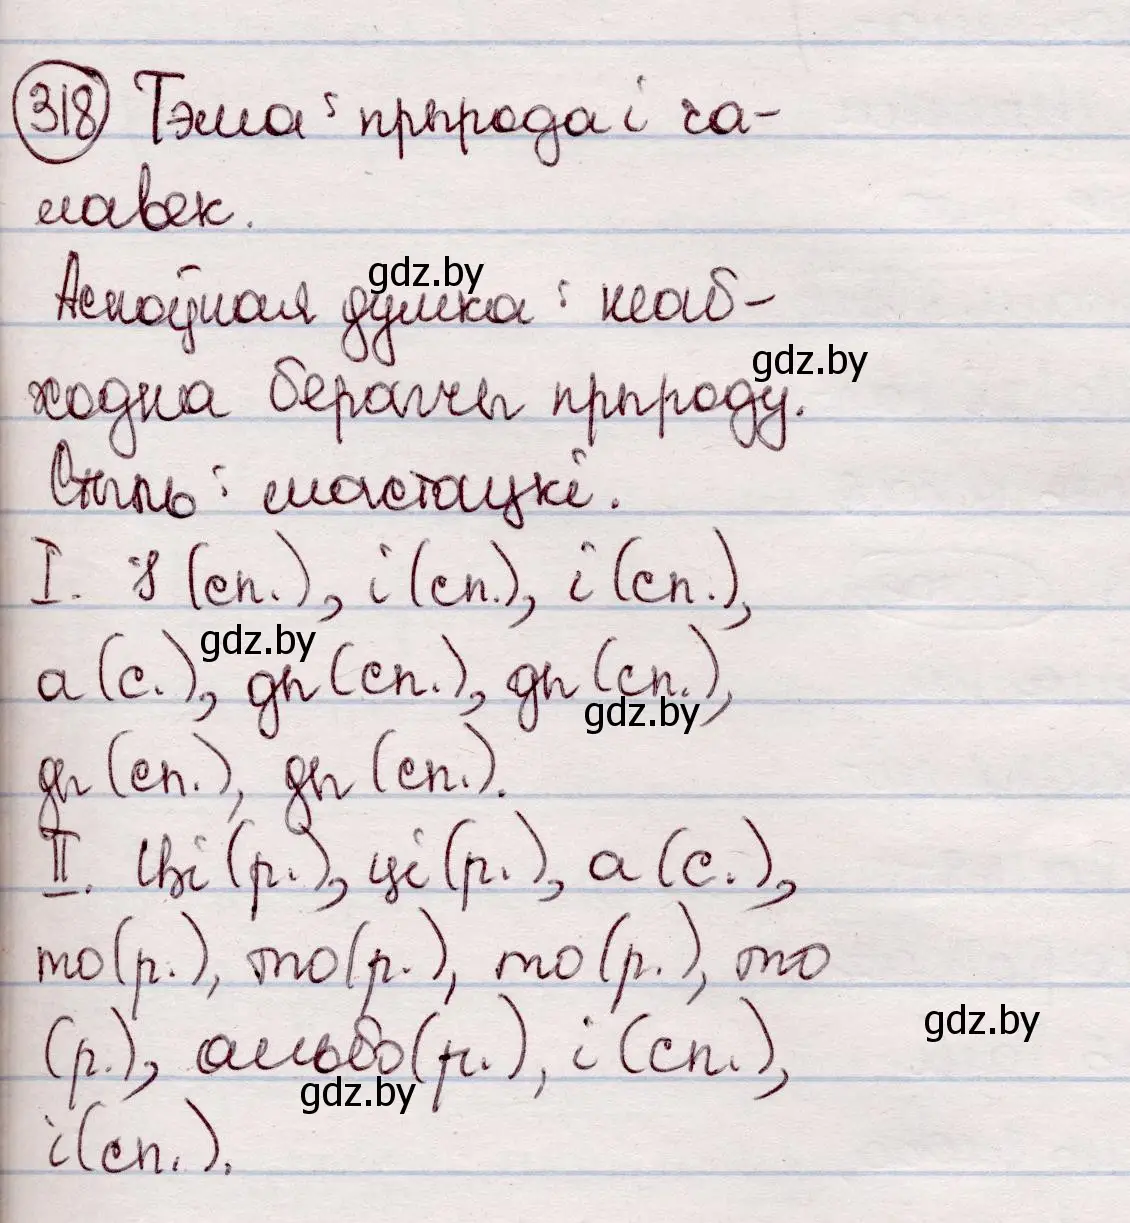 318 Тэма: прырода і ча-
лавек.
gdz.by
Асноўная думка: неаб-
gdz.by
ходна берагчы прыроду.
Стыль: мастацкі.
I. і (сп.), і (сп.), і (сп.),
gdz.by
а (с.), ды (сп.), ды (сп.),
gdz.by
ды (сп.), ды (сп.).
II. Ці (р.), ці (р.), а (с.),
то (р.), то (р.), то (р.), то
gdz.by
(р.), альбо (р.), і (сп.),
gdz.by
і (сп.).